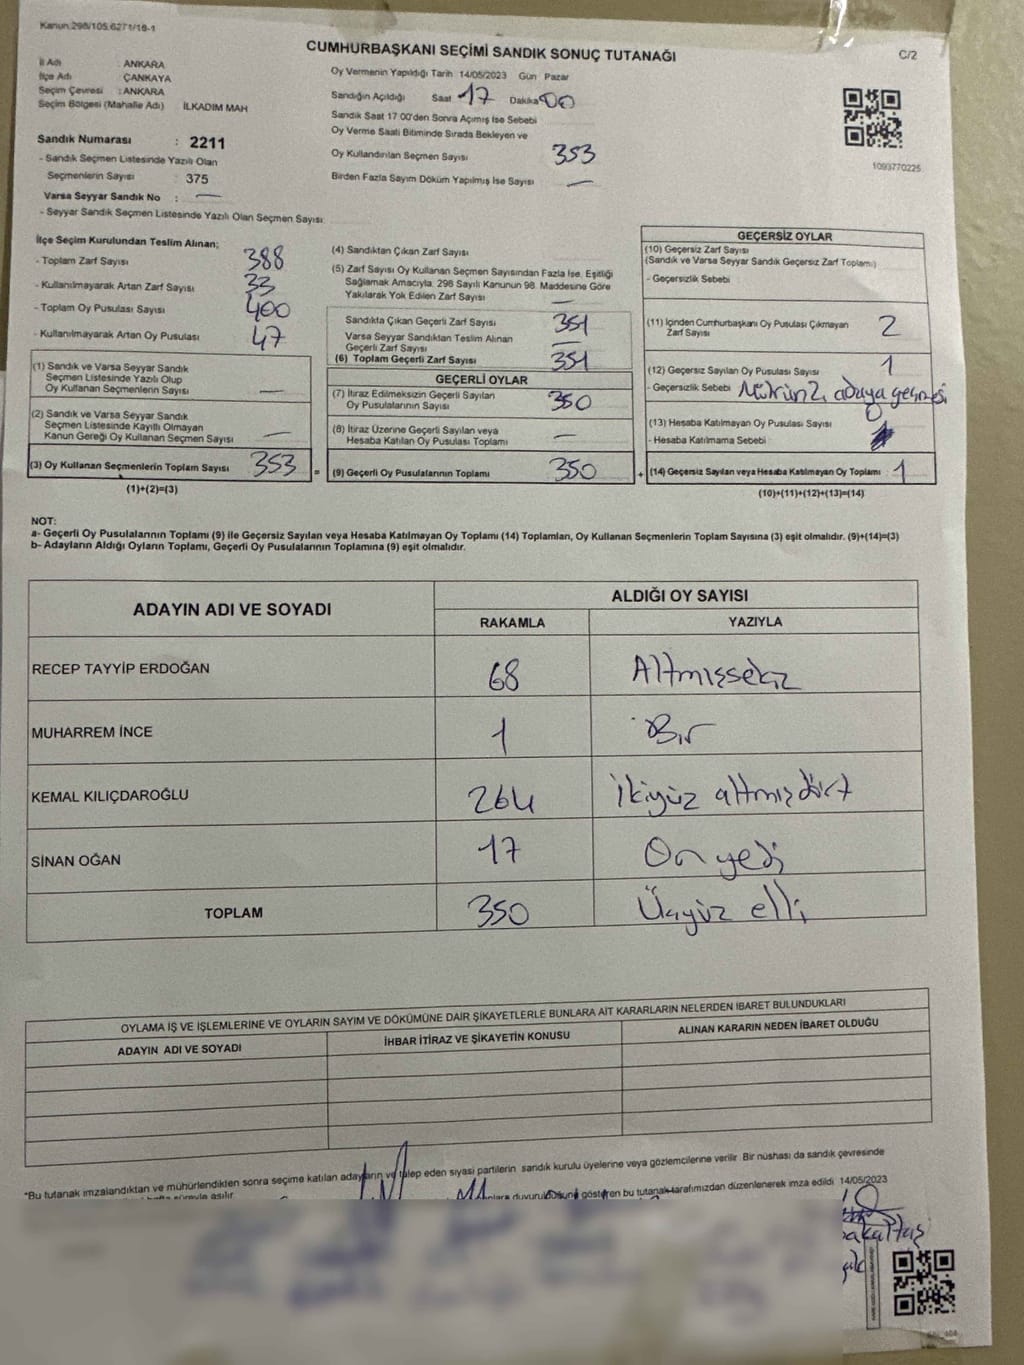 Kanun:298/105.6271/16-1
CUMHURBAŞKANI SEÇİMİ SANDIK SONUÇ TUTANAĞI
C/2
İl Adı : ANKARA
İlçe Adı : ÇANKAYA
Seçim Çevresi : ANKARA
Seçim Bölgesi (Mahalle Adı) İLKADIM MAH
Sandık Numarası : 2211
- Sandık Seçmen Listesinde Yazılı Olan
Seçmenlerin Sayısı : 375
Varsa Seyyar Sandık No : —
- Seyyar Sandık Seçmen Listesinde Yazılı Olan Seçmen Sayısı:
Oy Vermenin Yapıldığı Tarih 14/05/2023 Gün Pazar
Sandığın Açıldığı Saat 17 Dakika 00
Sandık Saat 17:00'den Sonra Açımış İse Sebebi
Oy Verme Saati Bitiminde Sırada Bekleyen ve
Oy Kullandırılan Seçmen Sayısı 353
Birden Fazla Sayım Döküm Yapılmış İse Sayısı —
1093770225
İlçe Seçim Kurulundan Teslim Alınan;
- Toplam Zarf Sayısı 388
- Kullanılmayarak Artan Zarf Sayısı 33
- Toplam Oy Pusulası Sayısı 400
- Kullanılmayarak Artan Oy Pusulası 47
(1) Sandık ve Varsa Seyyar Sandık
Seçmen Listesinde Yazılı Olup
Oy Kullanan Seçmenlerin Sayısı —
(2) Sandık ve Varsa Seyyar Sandık
Seçmen Listesinde Kayıtlı Olmayan
Kanun Gereği Oy Kullanan Seçmen Sayısı —
(3) Oy Kullanan Seçmenlerin Toplam Sayısı 353 =
(1)+(2)=(3)
(4) Sandıktan Çıkan Zarf Sayısı
(5) Zarf Sayısı Oy Kullanan Seçmen Sayısından Fazla İse, Eşitliği
Sağlamak Amacıyla, 298 Sayılı Kanunun 98. Maddesine Göre
Yakılarak Yok Edilen Zarf Sayısı —
Sandıkta Çıkan Geçerli Zarf Sayısı 351
Varsa Seyyar Sandıktan Teslim Alınan
Geçerli Zarf Sayısı —
(6) Toplam Geçerli Zarf Sayısı 351
GEÇERLİ OYLAR
(7) İtiraz Edilmeksizin Geçerli Sayılan
Oy Pusulalarının Sayısı 350
(8) İtiraz Üzerine Geçerli Sayılan veya
Hesaba Katılan Oy Pusulası Toplamı —
(9) Geçerli Oy Pusulalarının Toplamı 350 +
GEÇERSİZ OYLAR
(10) Geçersiz Zarf Sayısı
(Sandık ve Varsa Seyyar Sandık Geçersiz Zarf Toplamı)
- Geçersizlik Sebebi
(11) İçinden Cumhurbaşkanı Oy Pusulası Çıkmayan
Zarf Sayısı 2
(12) Geçersiz Sayılan Oy Pusulası Sayısı 1
- Geçersizlik Sebebi Mührün 2. adaya geçmesi
(13) Hesaba Katılmayan Oy Pusulası Sayısı 0
- Hesaba Katılmama Sebebi
(14) Geçersiz Sayılan veya Hesaba Katılmayan Oy Toplamı 1
(10)+(11)+(12)+(13)=(14)
NOT:
a- Geçerli Oy Pusulalarının Toplamı (9) ile Geçersiz Sayılan veya Hesaba Katılmayan Oy Toplamı (14) Toplamları, Oy Kullanan Seçmenlerin Toplam Sayısına (3) eşit olmalıdır. (9)+(14)=(3)
b- Adayların Aldığı Oyların Toplamı, Geçerli Oy Pusulalarının Toplamına (9) eşit olmalıdır.
ADAYIN ADI VE SOYADI
ALDIĞI OY SAYISI
RAKAMLA YAZIYLA
RECEP TAYYİP ERDOĞAN 68 Altmışsekiz
MUHARREM İNCE 1 Bir
KEMAL KILIÇDAROĞLU 264 İkiyüz altmışdört
SİNAN OĞAN 17 On yedi
TOPLAM 350 Üçyüz elli
OYLAMA İŞ VE İŞLEMLERİNE VE OYLARIN SAYIM VE DÖKÜMÜNE DAİR ŞİKAYETLERLE BUNLARA AİT KARARLARIN NELERDEN İBARET BULUNDUKLARI
ADAYIN ADI VE SOYADI İHBAR İTİRAZ VE ŞİKAYETİN KONUSU ALINAN KARARIN NEDEN İBARET OLDUĞU
*Bu tutanak imzalandıktan ve mühürlendikten sonra seçime katılan adayların ve talep eden siyasi partilerin sandık kurulu üyelerine veya gözlemcilerine verilir. Bir nüshası da sandık çevresinde
gösteren bu tutanak tarafımızdan düzenlenerek imza edildi. 14/05/2023